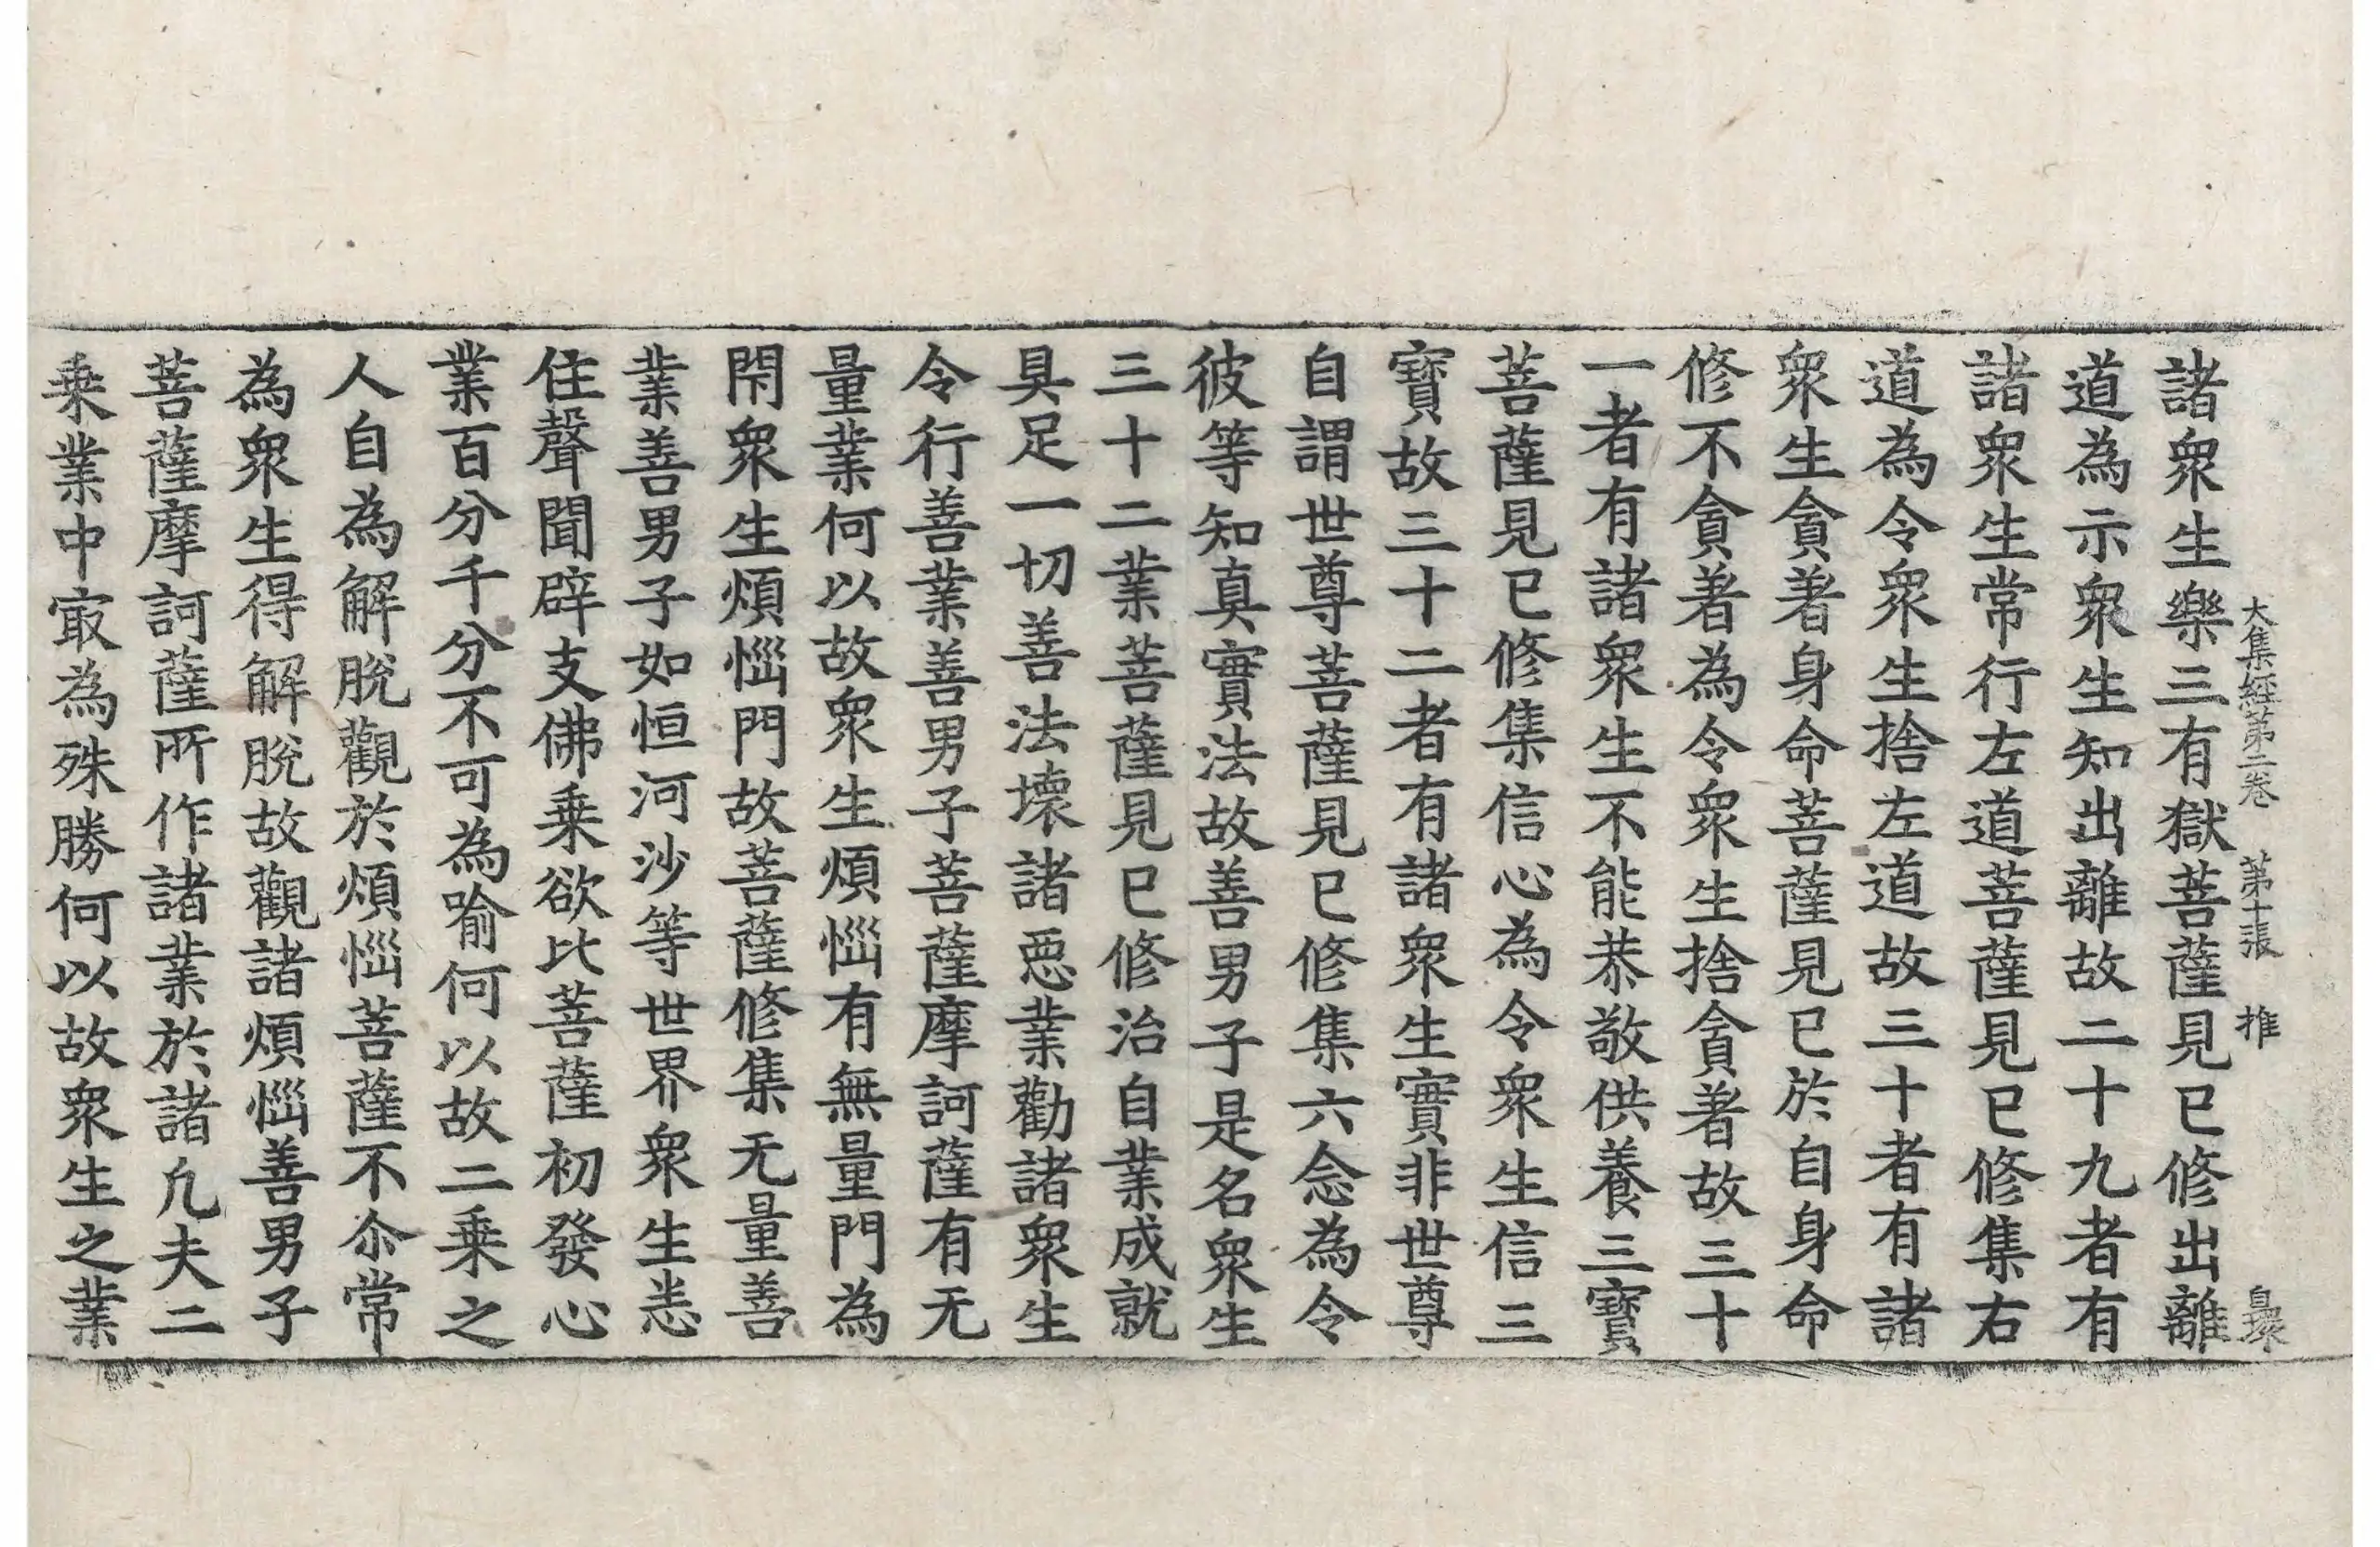 大集經第二卷 第十張 推
諸衆生樂三有獄菩薩見已修出離
道為示衆生知出離故二十九者有
諸衆生常行左道菩薩見已修集右
道為令衆生捨左道故三十者有諸
衆生貪著身命菩薩見已於自身命
修不貪著為令衆生捨貪著故三十
一者有諸衆生不能恭敬供養三寶
菩薩見已修集信心為令衆生信三
寶故三十二者有諸衆生實非世尊
自謂世尊菩薩見已修集六念為令
彼等知真實法故善男子是名衆生
三十二業菩薩見已修治自業成就
具足一切善法壞諸惡業勸諸衆生
令行善業善男子菩薩摩訶薩有无
量業何以故衆生煩惱有無量門為
閇衆生煩惱門故菩薩修集无量善
業善男子如恒河沙等世界衆生悉
住聲聞辟支佛乗欲比菩薩初發心
業百分千分不可為喻何以故二乗之
人自為解脫觀於煩惱菩薩不尒常
為衆生得解脫故觀諸煩惱善男子
菩薩摩訶薩所作諸業於諸凡夫二
乗業中㝡為殊勝何以故衆生之業